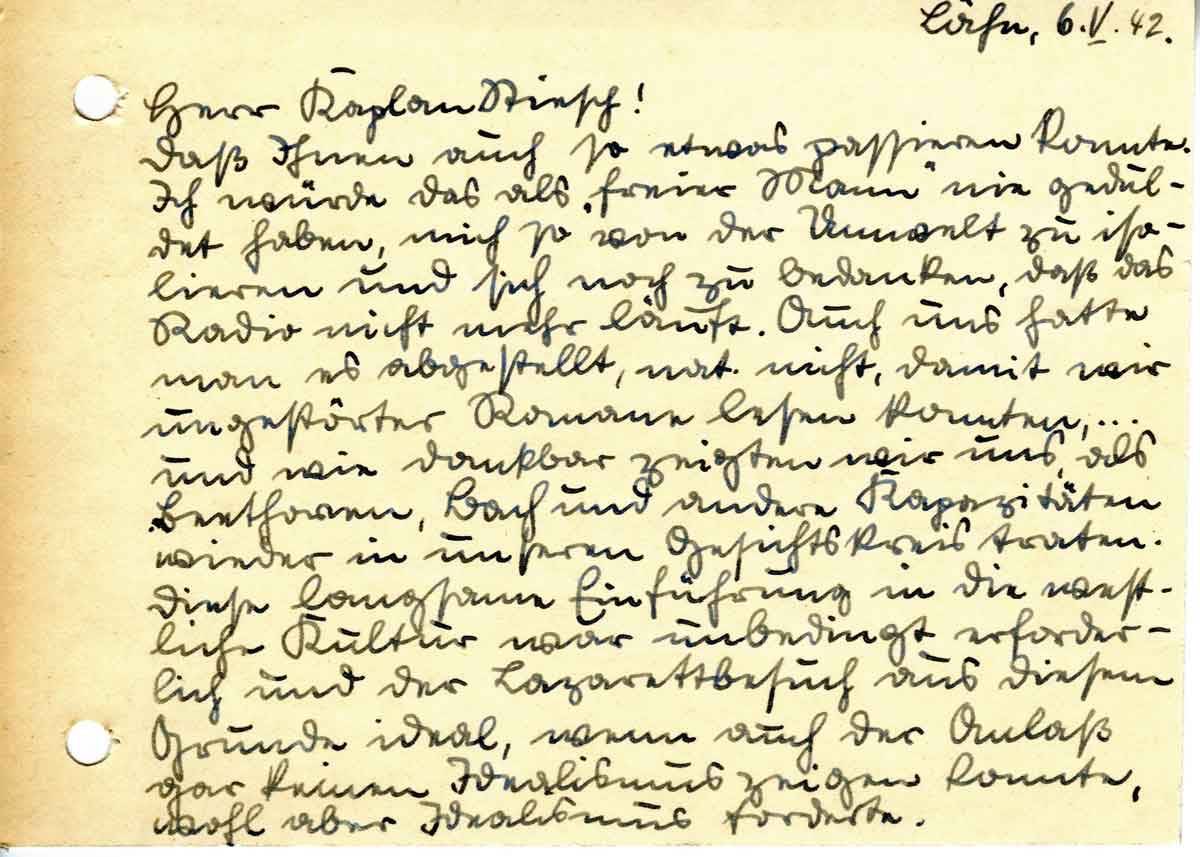 Lähn, 6.V.42.
Herr Kaplan Stiesch!
Daß Ihnen auch so etwas passieren konnte.
Ich würde das als „freier Mann“ nie gedul-
det haben, mich so von der Umwelt zu iso-
lieren und sich noch zu bedanken, daß das
Radio nicht mehr läuft. Auch uns hatte
man es abgestellt, nat. nicht, damit wir
ungestörter Romane lesen konnten,...
und wie dankbar zeigten wir uns, als
Beethoven, Bach und andere Kapazitäten
wieder in unseren Gesichtskreis traten.
Diese langsame Einführung in die west-
liche Kultur war unbedingt erforder-
lich und der Lazarettbesuch aus diesem
Grunde ideal, wenn auch der Anlaß
gar keinen Idealismus zeigen konnte,
wohl aber Idealismus forderte.